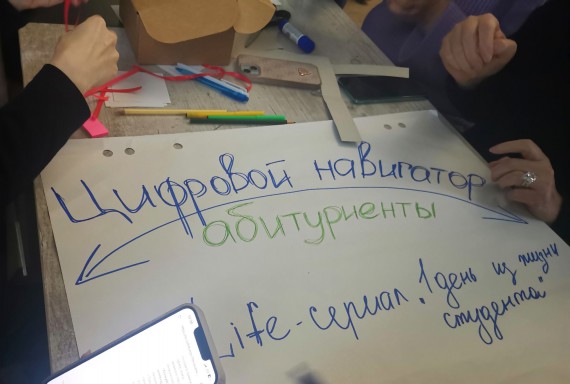 Цифровой навигатор
абитуриенты
Life-сериал „1 день из жизни
студента"